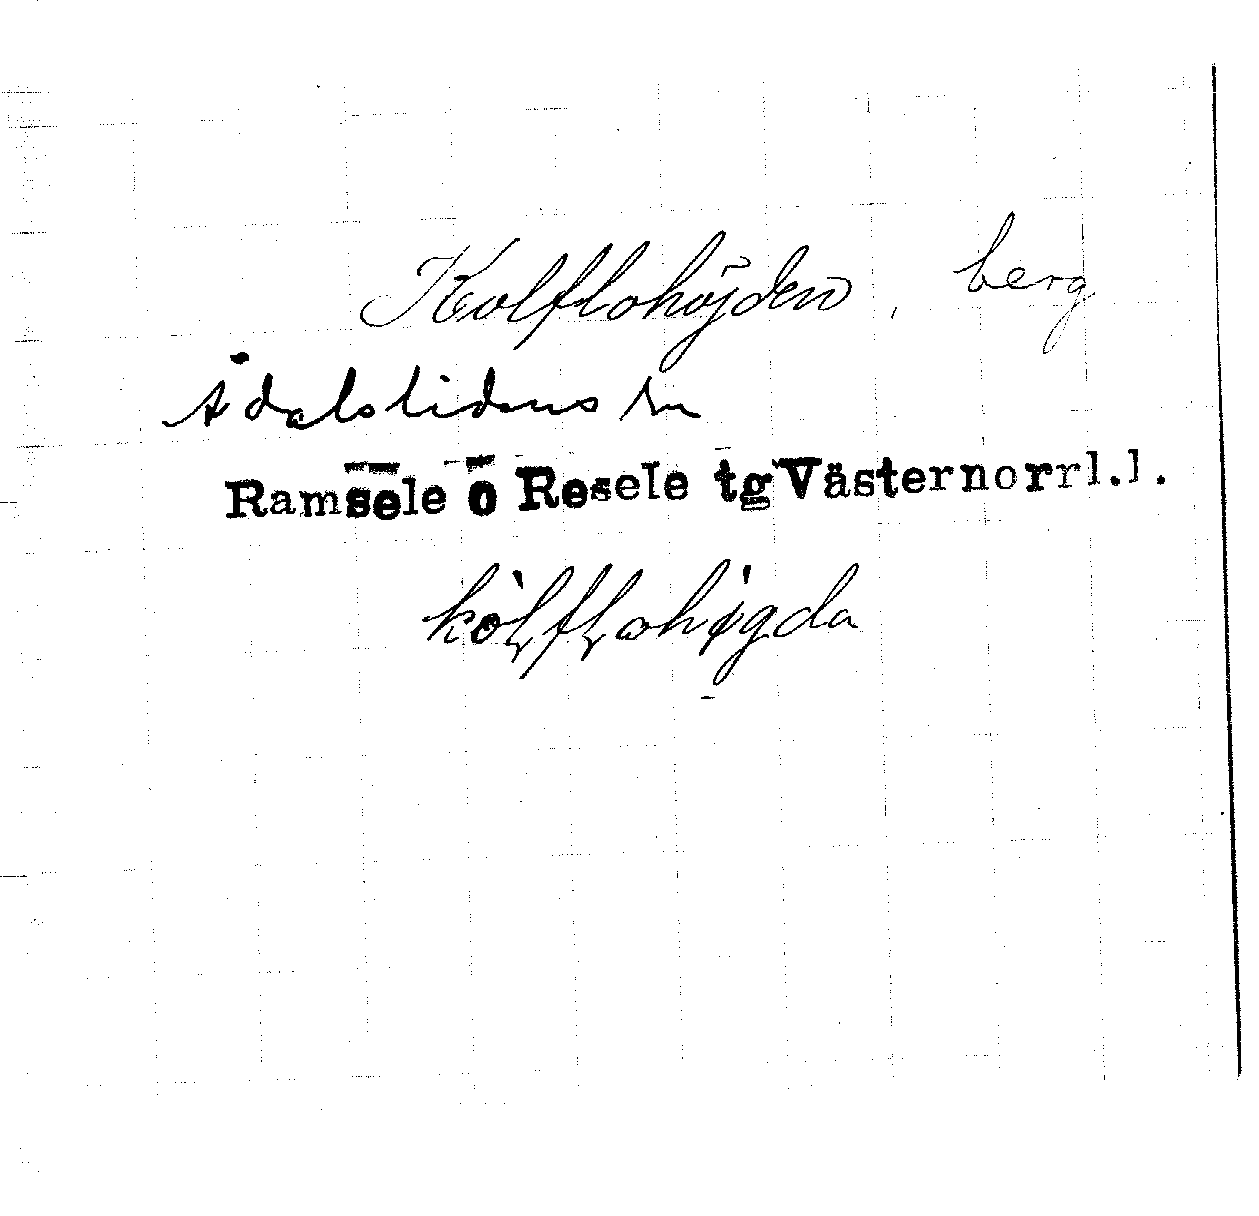 Kolflohöjden, berg
Ådalslidens sn
Ramsele o Resele tg Västernorrl.l.